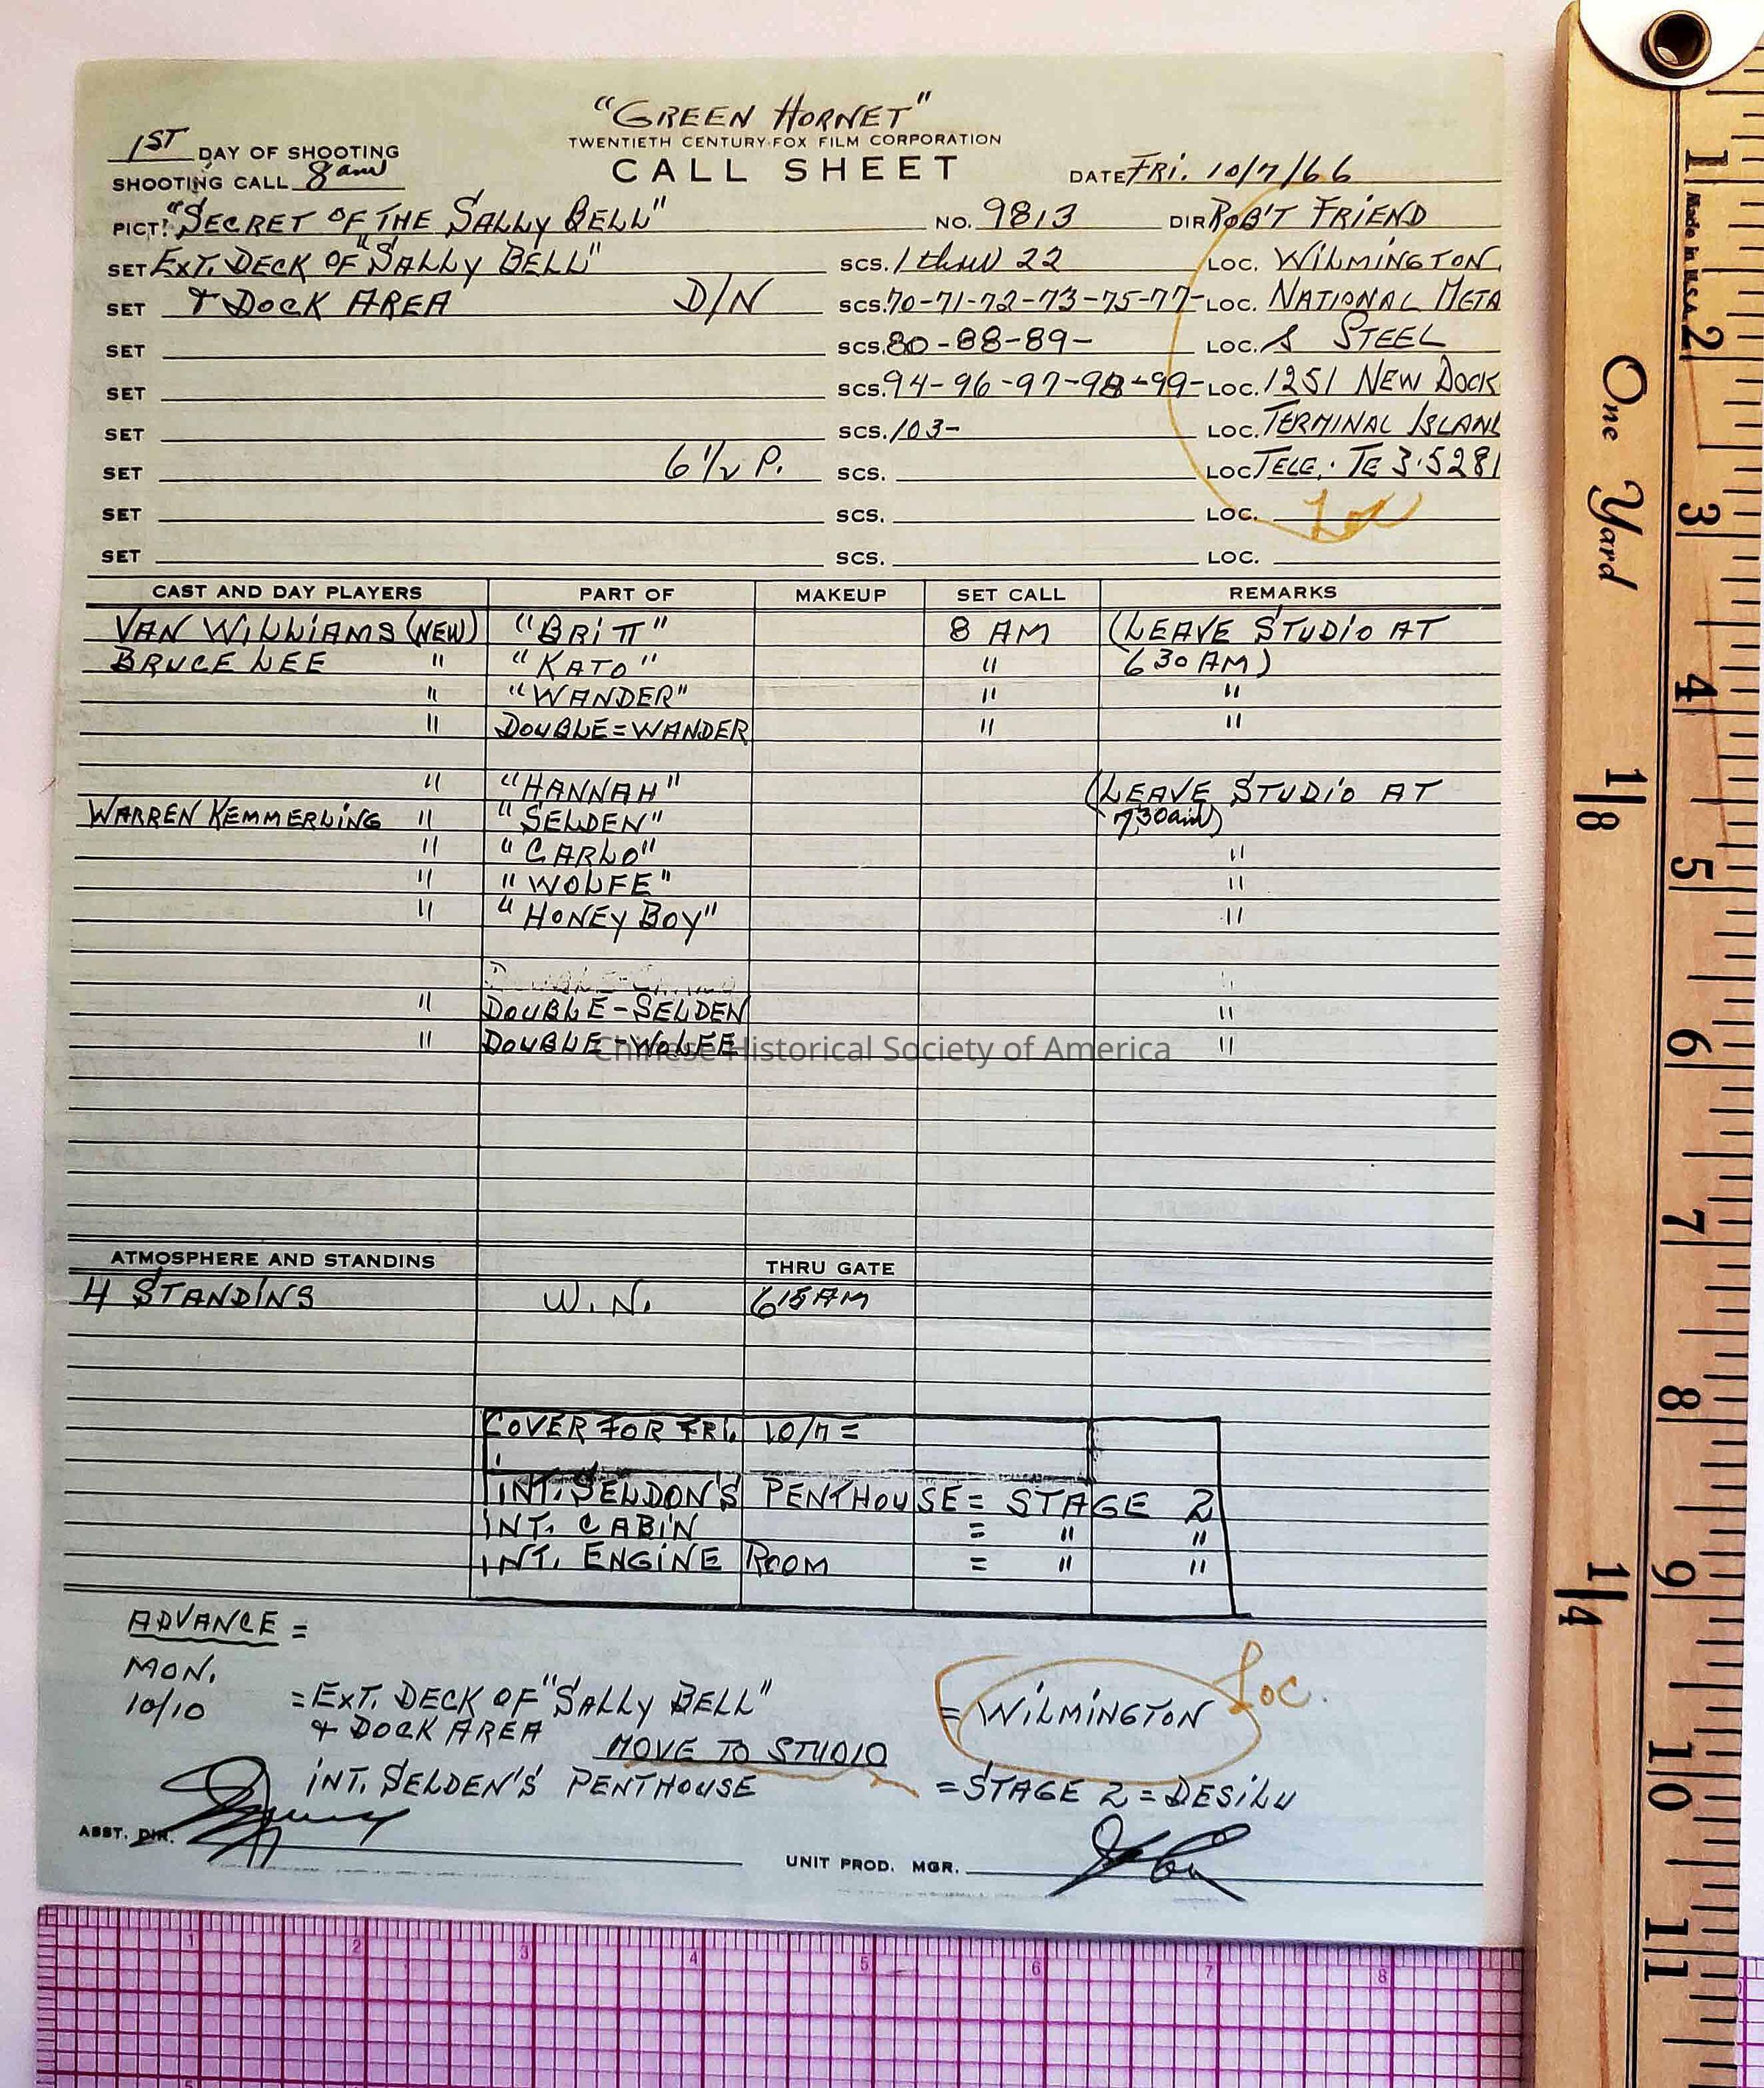 "GREEN HORNET"
TWENTIETH CENTURY-FOX FILM CORPORATION
CALL SHEET
1ST DAY OF SHOOTING
SHOOTING CALL 8am
DATE FRI. 10/7/66
PICT. "SECRET OF THE SALLY BELL" NO. 9813 DIR ROB'T FRIEND
SET EXT. DECK OF "SALLY BELL" SCS. 1 thru 22 LOC. WILMINGTON
SET & DOCK AREA D/N SCS. 70-71-72-73-75-77- LOC. NATIONAL META
SET SCS. 80-88-89- LOC. & STEEL
SET SCS. 94-96-97-98-99- LOC. 1251 NEW DOCK
SET SCS. 103- LOC. TERMINAL ISLAND
SET 6 1/2 P. SCS. LOC. TELE. TE 3-5281
SET SCS. LOC. Loc
SET SCS. LOC.
CAST AND DAY PLAYERS PART OF MAKEUP SET CALL REMARKS
VAN WILLIAMS (NEW) "BRITT" 8 AM (LEAVE STUDIO AT
BRUCE LEE " "KATO" " 630 AM)
" "WANDER" " "
" DOUBLE=WANDER " "
" "HANNAH" (LEAVE STUDIO AT
WARREN KEMMERLING " "SELDEN" 730am)
" "CARLO" "
" "WOLFE" "
" "HONEY BOY" "
" DOUBLE-SELDEN "
" DOUBLE-WOLFE "
Chinese Historical Society of America
ATMOSPHERE AND STANDINS THRU GATE
4 STANDINS W.N. 615 AM
COVER FOR FRI. 10/7=
INT. SELDON'S PENTHOUSE= STAGE 2
INT. CABIN = " "
INT. ENGINE ROOM = " "
ADVANCE =
MON.
10/10 =EXT. DECK OF "SALLY BELL" =WILMINGTON Loc.
& DOCK AREA
MOVE TO STUDIO
INT. SELDEN'S PENTHOUSE =STAGE 2=DESILU
ASST. DIR.
UNIT PROD. MGR.
One Yard
Made in U.S.A.
1 2 3 4 5 6 7 8 9 10 11
1/8
1/4
1 2 3 4 5 6 7 8